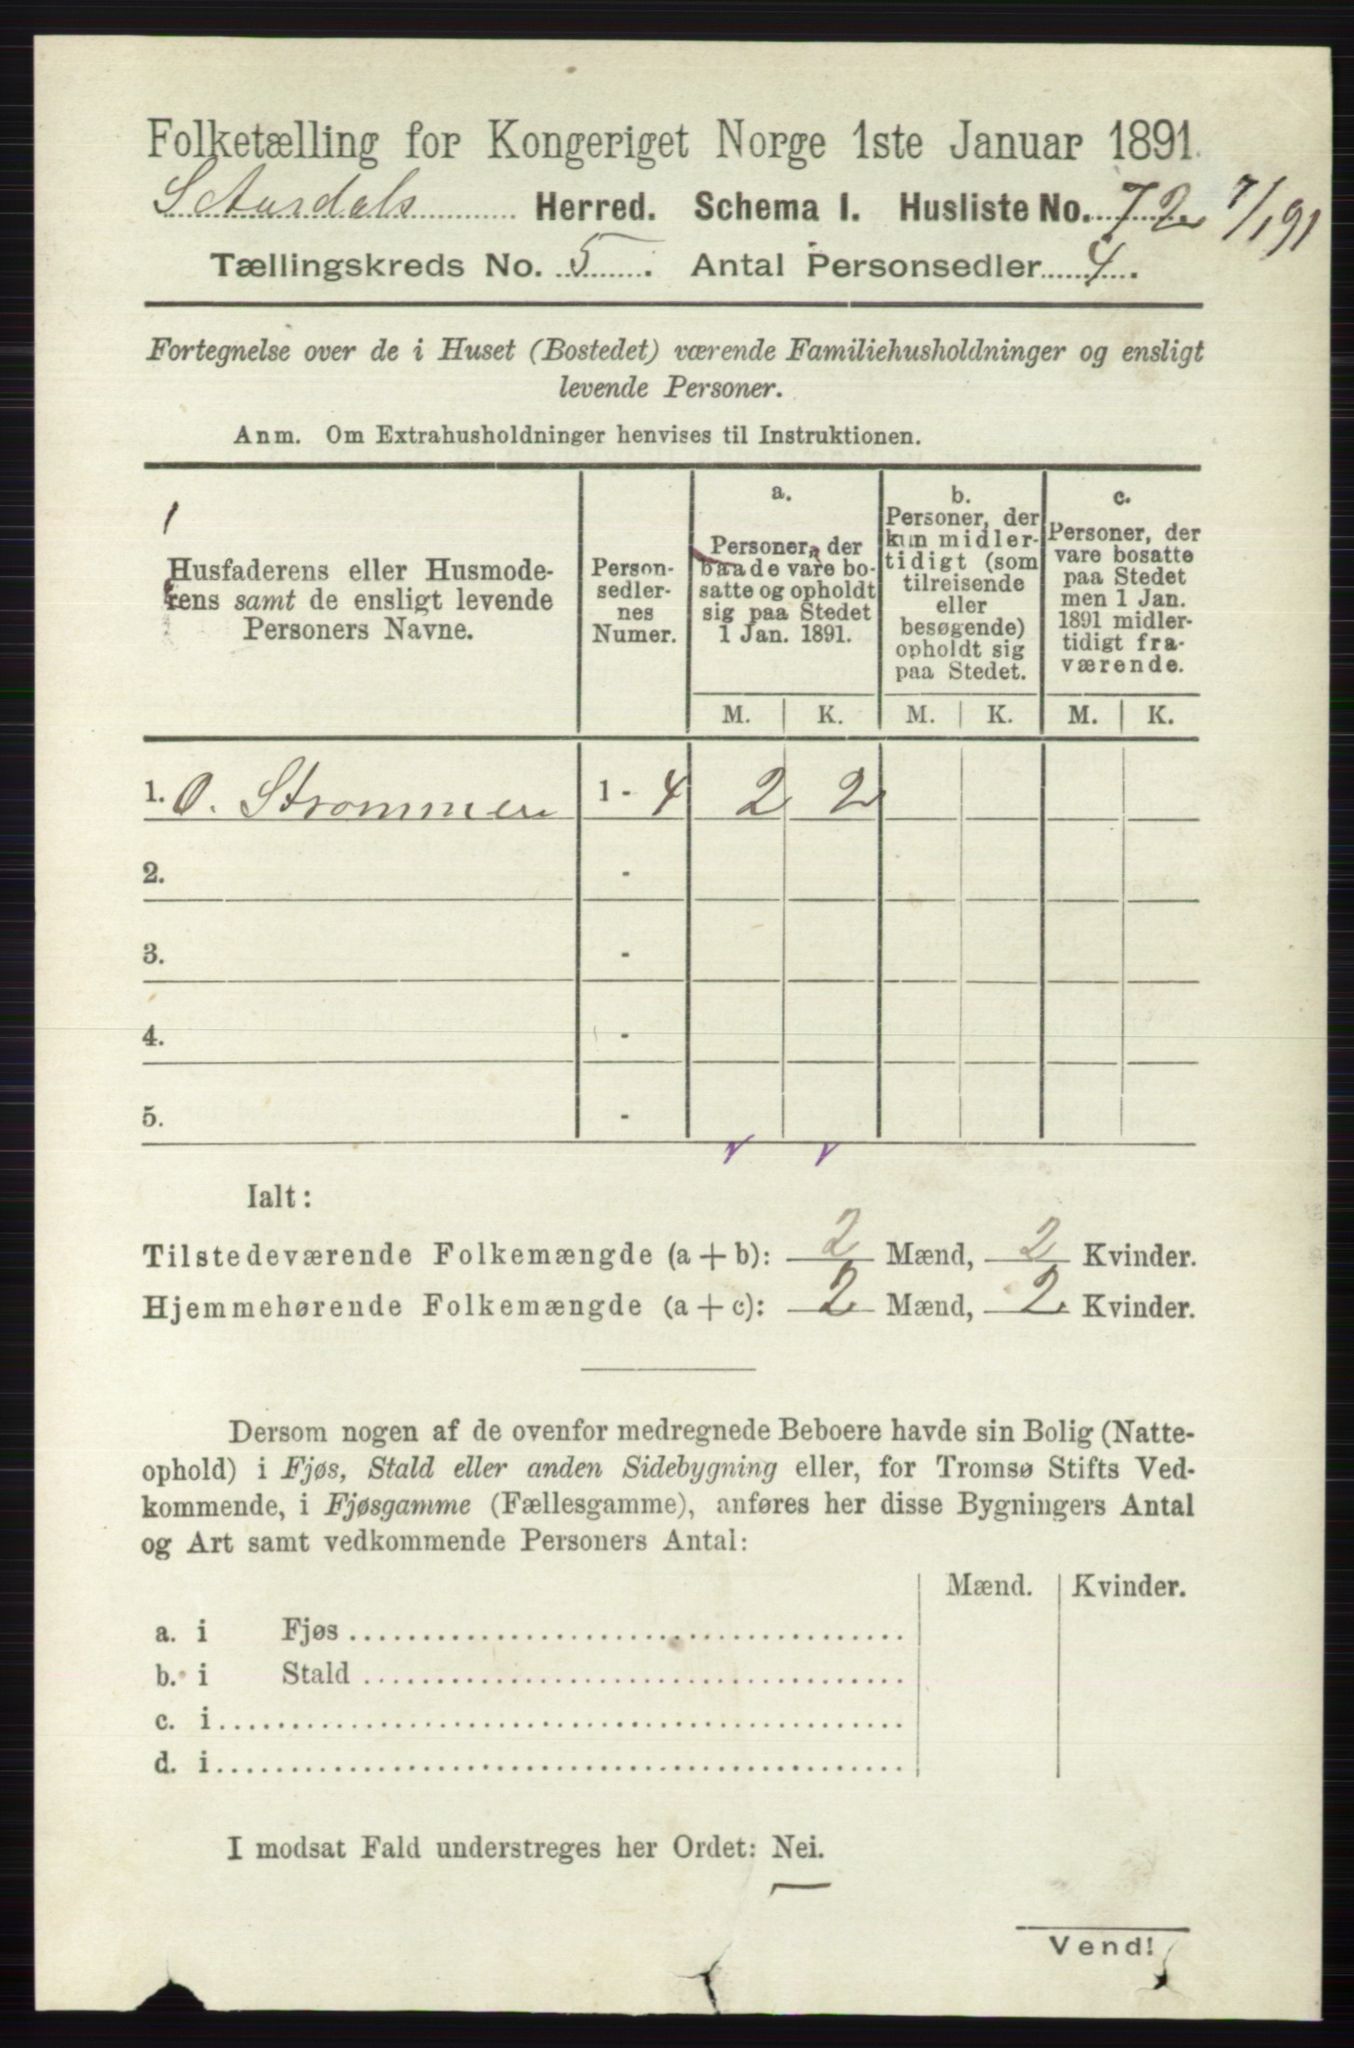 Folketælling for Kongeriget Norge 1ste Januar 1891.
S. Aurdals Herred. Schema I. Husliste No. 72 7/1 91
Tællingskreds No. 5. Antal Personsedler 4.
Fortegnelse over de i Huset (Bostedet) værende Familiehusholdninger og ensligt
levende Personer.
Anm. Om Extrahusholdninger henvises til Instruktionen.
1
Husfaderens eller Husmode-
rens samt de ensligt levende
Personers Navne.
Person-
sedler-
nes
Numer.
a.
Personer, der
baade vare bo-
satte og opholdt
sig paa Stedet
1 Jan. 1891.
b.
Personer, der
kun midler-
tidigt (som
tilreisende
eller
besøgende)
opholdt sig
paa Stedet.
c.
Personer, der
vare bosatte
paa Stedet
men 1 Jan.
1891 midler-
tidigt fra-
værende.
M. K. M. K. M. K.
1. O. Strømmen 1 - 4 2 2
2. -
3. -
4. -
5. -
Ialt:
Tilstedeværende Folkemængde (a + b): 2 Mænd, 2 Kvinder.
Hjemmehørende Folkemængde (a + c): 2 Mænd, 2 Kvinder.
Dersom nogen af de ovenfor medregnede Beboere havde sin Bolig (Natte-
ophold) i Fjøs, Stald eller anden Sidebygning eller, for Tromsø Stifts Ved-
kommende, i Fjøsgamme (Fællesgamme), anføres her disse Bygningers Antal
og Art samt vedkommende Personers Antal:
Mænd. Kvinder.
a. i Fjøs
b. i Stald
c. i
d. i
I modsat Fald understreges her Ordet: Nei.
Vend!